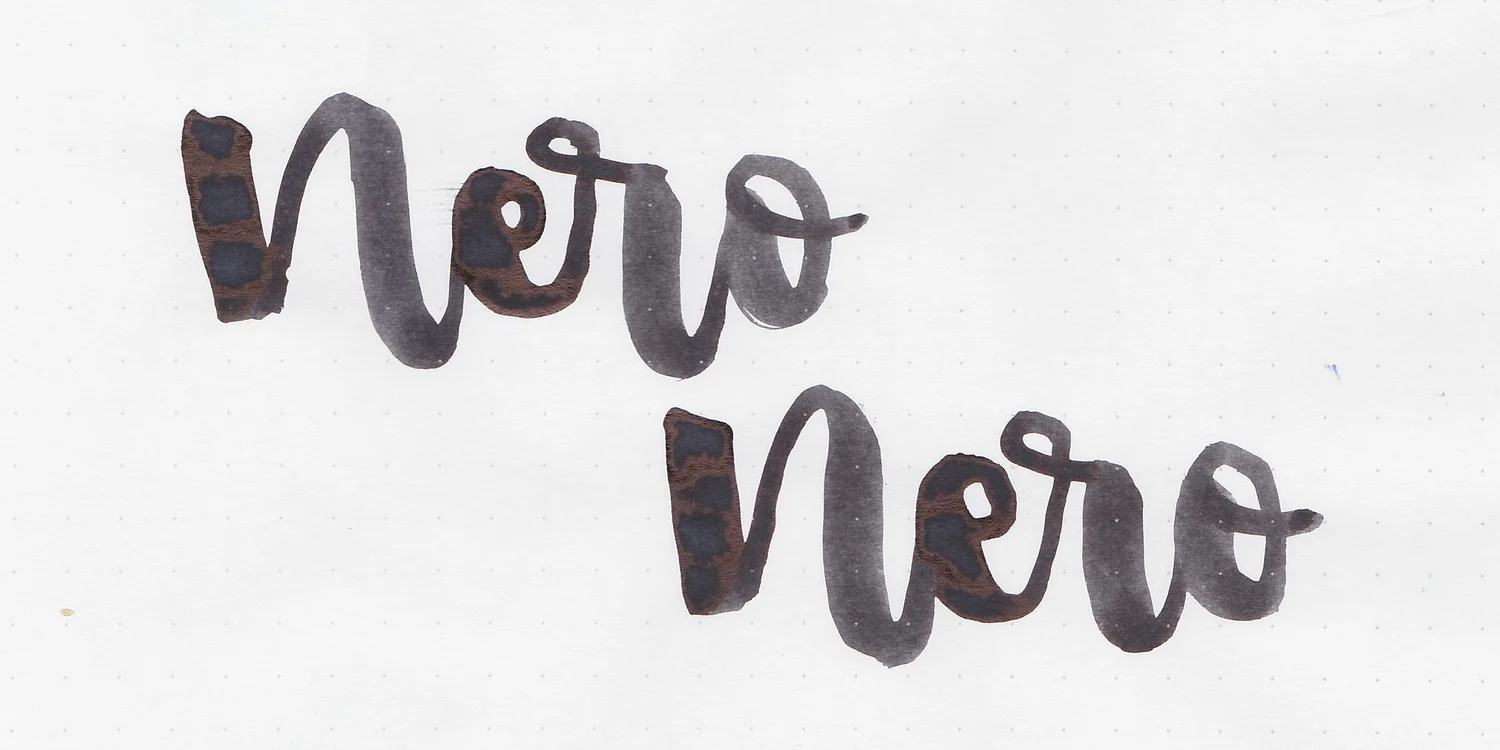 Nero
Nero